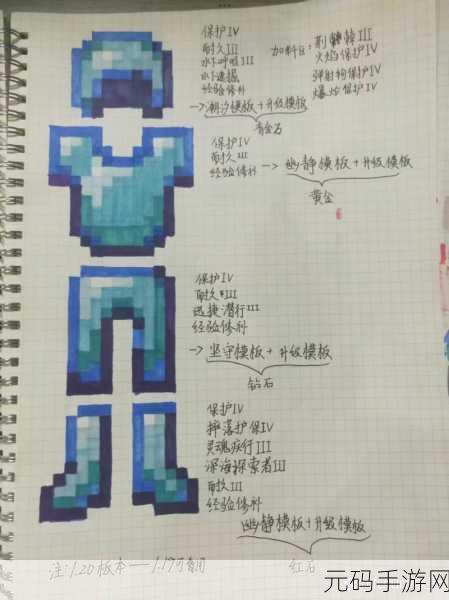 保护IV
耐久III
水下呼吸III
水下速掘
经验修补
加料区：荆棘III
火焰保护IV
弹射物保护IV
爆炸保护IV
→潮汐模板+升级模板
青金石
保护IV
耐久III
经验修补
→幽静模板+升级模板
黄金
保护IV
耐久III
迅捷潜行III
经验修补
→坚守模板+升级模板
钻石
保护IV
摔落护保IV
灵魂疾行III
深海探索者III
耐久III
经验修补
幽静模板+升级模板
红石
注:1.20版本——1.19可看用
元码手游网